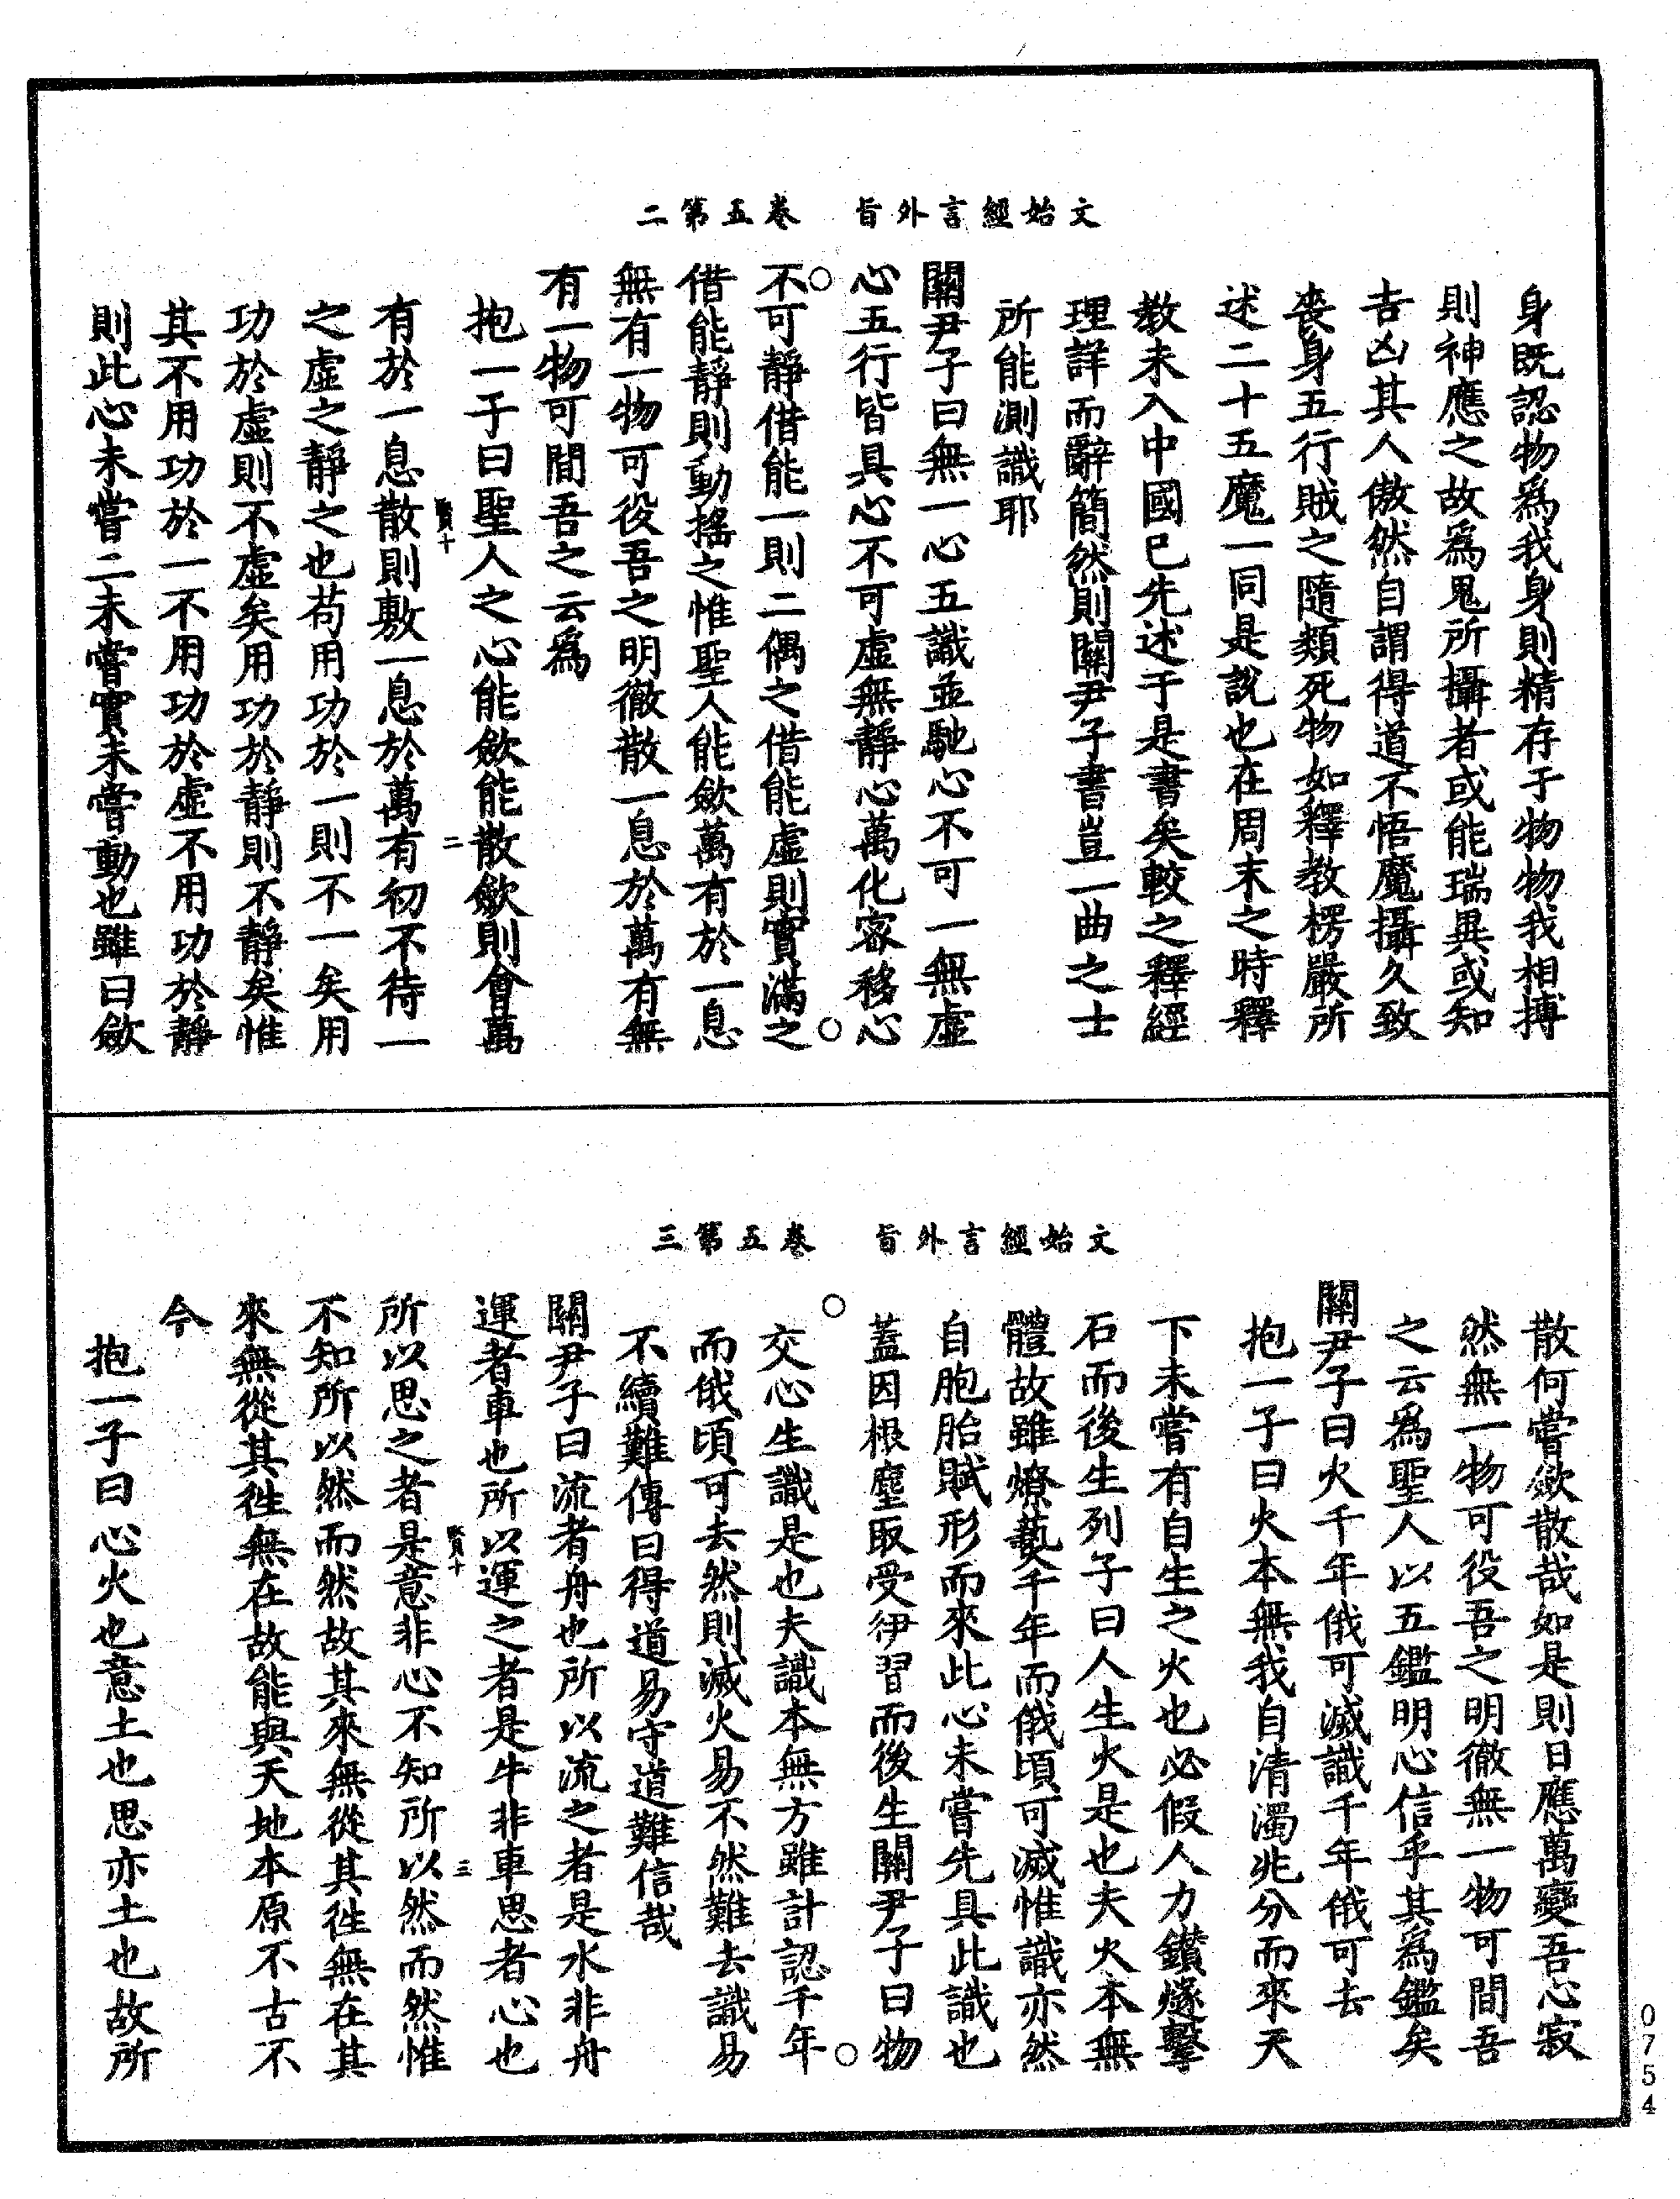 文始經言外旨　卷五第二
身既認物爲我身則精存于物物我相搏
則神應之故爲鬼所攝者或能瑞異或知
吉凶其人傲然自謂得道不悟魔攝久致
喪身五行賊之隨類死物如釋教楞嚴所
述二十五魔一同是說也在周末之時釋
教未入中國已先述于是書矣較之釋經
理詳而辭簡然則關尹子書豈一曲之士
所能測識耶
關尹子曰無一心五識並馳心不可一無虛
心五行皆具心不可虛無靜心萬化密移心
不可靜借能一則二偶之借能虛則實滿之
借能靜則動搖之惟聖人能斂萬有於一息
無有一物可役吾之明徹散一息於萬有無
有一物可間吾之云爲
抱一子曰聖人之心能斂能散斂則會萬
有於一息散則敷一息於萬有初不待一
之虛之靜之也苟用功於一則不一矣用
功於虛則不虛矣用功於靜則不靜矣惟
其不用功於一不用功於虛不用功於靜
則此心未嘗二未嘗實未嘗動也雖曰斂
賢十　二
文始經言外旨　卷五第三
散何嘗斂散哉如是則日應萬變吾心寂
然無一物可役吾之明徹無一物可間吾
之云爲聖人以五鑑明心信乎其爲鑑矣
關尹子曰火千年俄可滅識千年俄可去
抱一子曰火本無我自清濁兆分而來天
下未嘗有自生之火也必假人力鑽燧擊
石而後生列子曰人生火是也夫火本無
體故雖燎爇千年而俄頃可滅惟識亦然
自胞胎賦形而來此心未嘗先具此識也
蓋因根塵取受彵習而後生關尹子曰物
交心生識是也夫識本無方雖計認千年
而俄頃可去然則滅火易不然難去識易
不續難傳曰得道易守道難信哉
關尹子曰流者舟也所以流之者是水非舟
運者車也所以運之者是牛非車思者心也
所以思之者是意非心不知所以然而然惟
不知所以然而然故其來無從其往無在其
來無從其往無在故能與天地本原不古不
今
抱一子曰心火也意土也思亦土也故所
賢十　三
0754